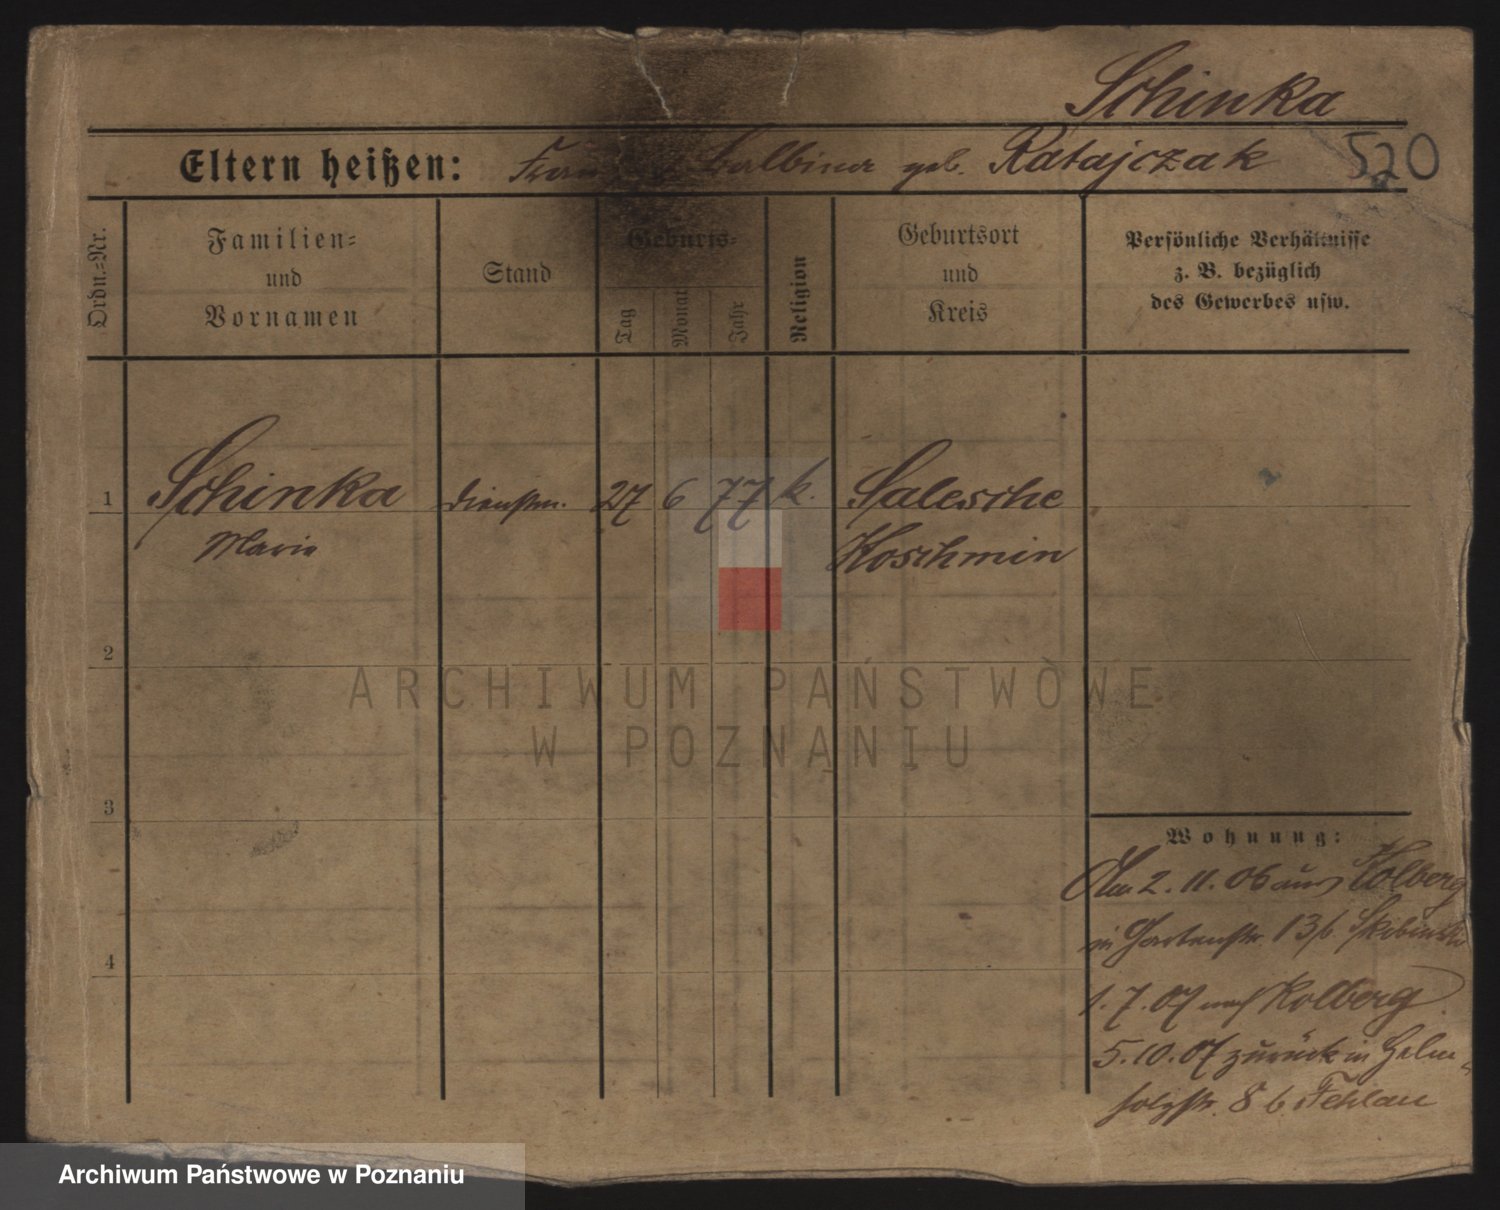 Schinka
Eltern heißen: Balbina geb. Ratajczak
520
Ordn.-Nr.
Familien-
und
Vornamen
Stand
Geburts-
Tag
Monat
Jahr
Religion
Geburtsort
und
Kreis
Persönliche Verhältnisse
z. B. bezüglich
des Gewerbes usw.
1 Schinka Dienstm. 27 6 77 k. Salesche
Marie Koschmin
2
ARCHIWUM PAŃSTWOWE
W POZNANIU
3
Wohnung:
Am 2. 11. 06 aus Kolberg
in Gartenstr. 13 b.
4
1. 7. 07 nach Kolberg
5. 10. 07 zurück in Helm-
holzstr. 8 b. Fehlau
Archiwum Państwowe w Poznaniu